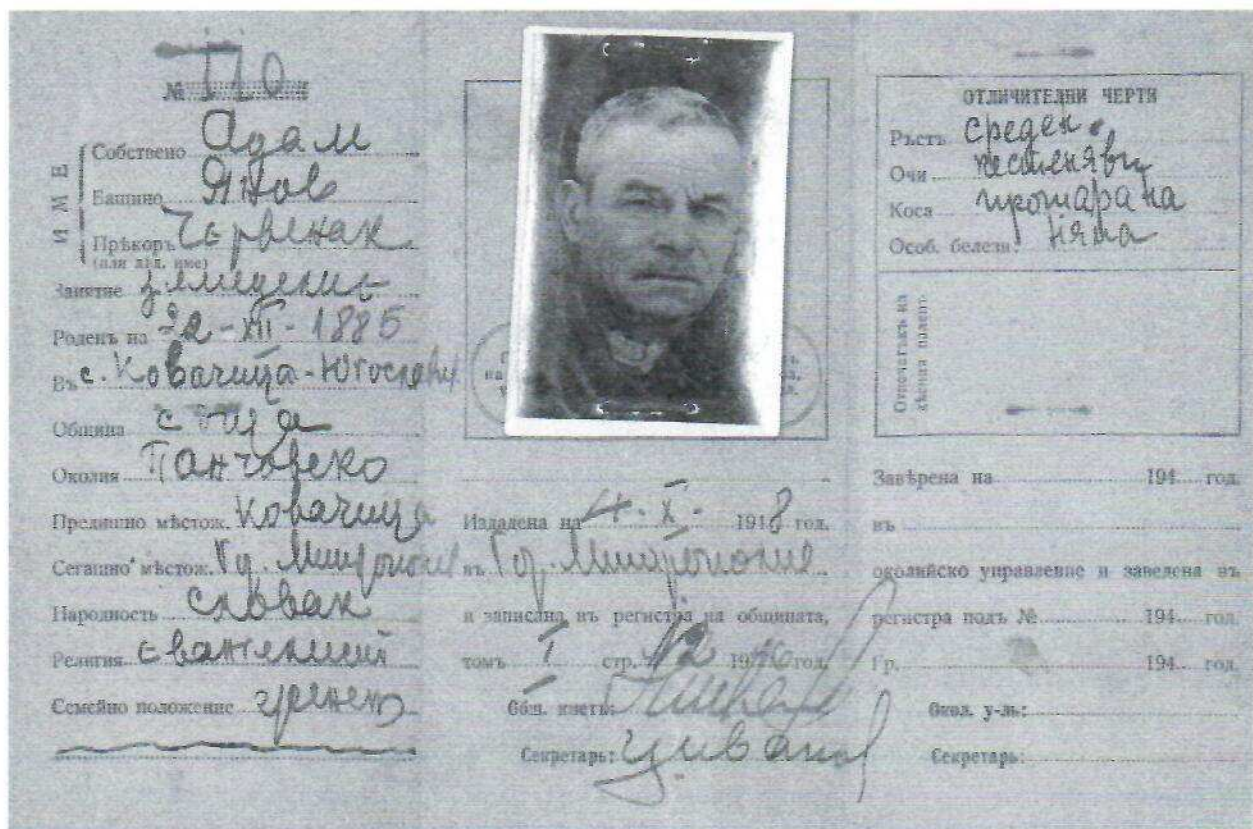 № 110
ИМЕ
Собствено Адам
Бащино Янов
Прѣкоръ Червенак
(или дѣд. име)
Занятие земеделие
Роденъ на 22-XII-1885
Въ с. Ковачица-Югославия
Община с. сѫща
Околия Панчовско
Предишно мѣстож. Ковачица
Сегашно мѣстож. Гор. Митрополие
Народность Словак
Религия Евангелист
Семейно положение
Издадена на 4-X- 1918 год.
въ Гор. Митрополие
и записана въ регистра на общината,
томъ I стр. 12 19 год.
Общ. кметъ:
Секретарь:
ОТЛИЧИТЕЛНИ ЧЕРТИ
Ръстъ среден
Очи
Коса прошарана
Особ. белези: няма
Отпечатъкъ на
дѣсния палецъ
Завѣрена на 194 год.
въ
околийско управление и заведена въ
регистра подъ № 194 год.
Гр. 194 год.
Окол. у-лъ:
Секретарь: